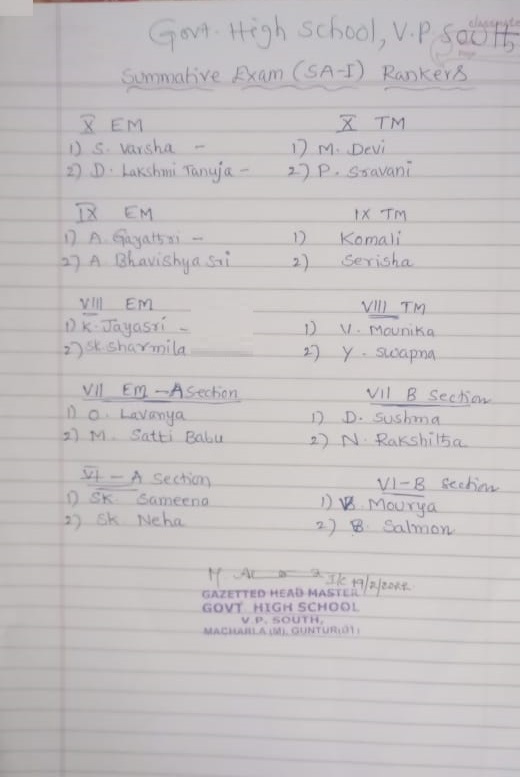 Govt. High School, V.P. South
Summative Exam (SA-I) Rankers
X EM
1) S. Varsha -
2) D. Lakshmi Tanuja -
X TM
1) M. Devi
2) P. Sravani
IX EM
1) A. Gayattri -
2) A Bhavishya Sri
IX TM
1) Komali
2) Serisha
VIII EM
1) K. Jayasri -
2) SK. Sharmila
VIII TM
1) V. Mounika
2) Y. Swapna
VII EM - A Section
1) O. Lavanya
2) M. Satti Babu
VII B Section
1) D. Sushma
2) N. Rakshitha
VI - A Section
1) SK. Sameena
2) SK Neha
VI-B Section
1) B. Mourya
2) B. Salmon
I/c 19/2/2022
GAZETTED HEAD MASTER
GOVT HIGH SCHOOL
V.P. SOUTH,
MACHARLA (M), GUNTUR(Dt)